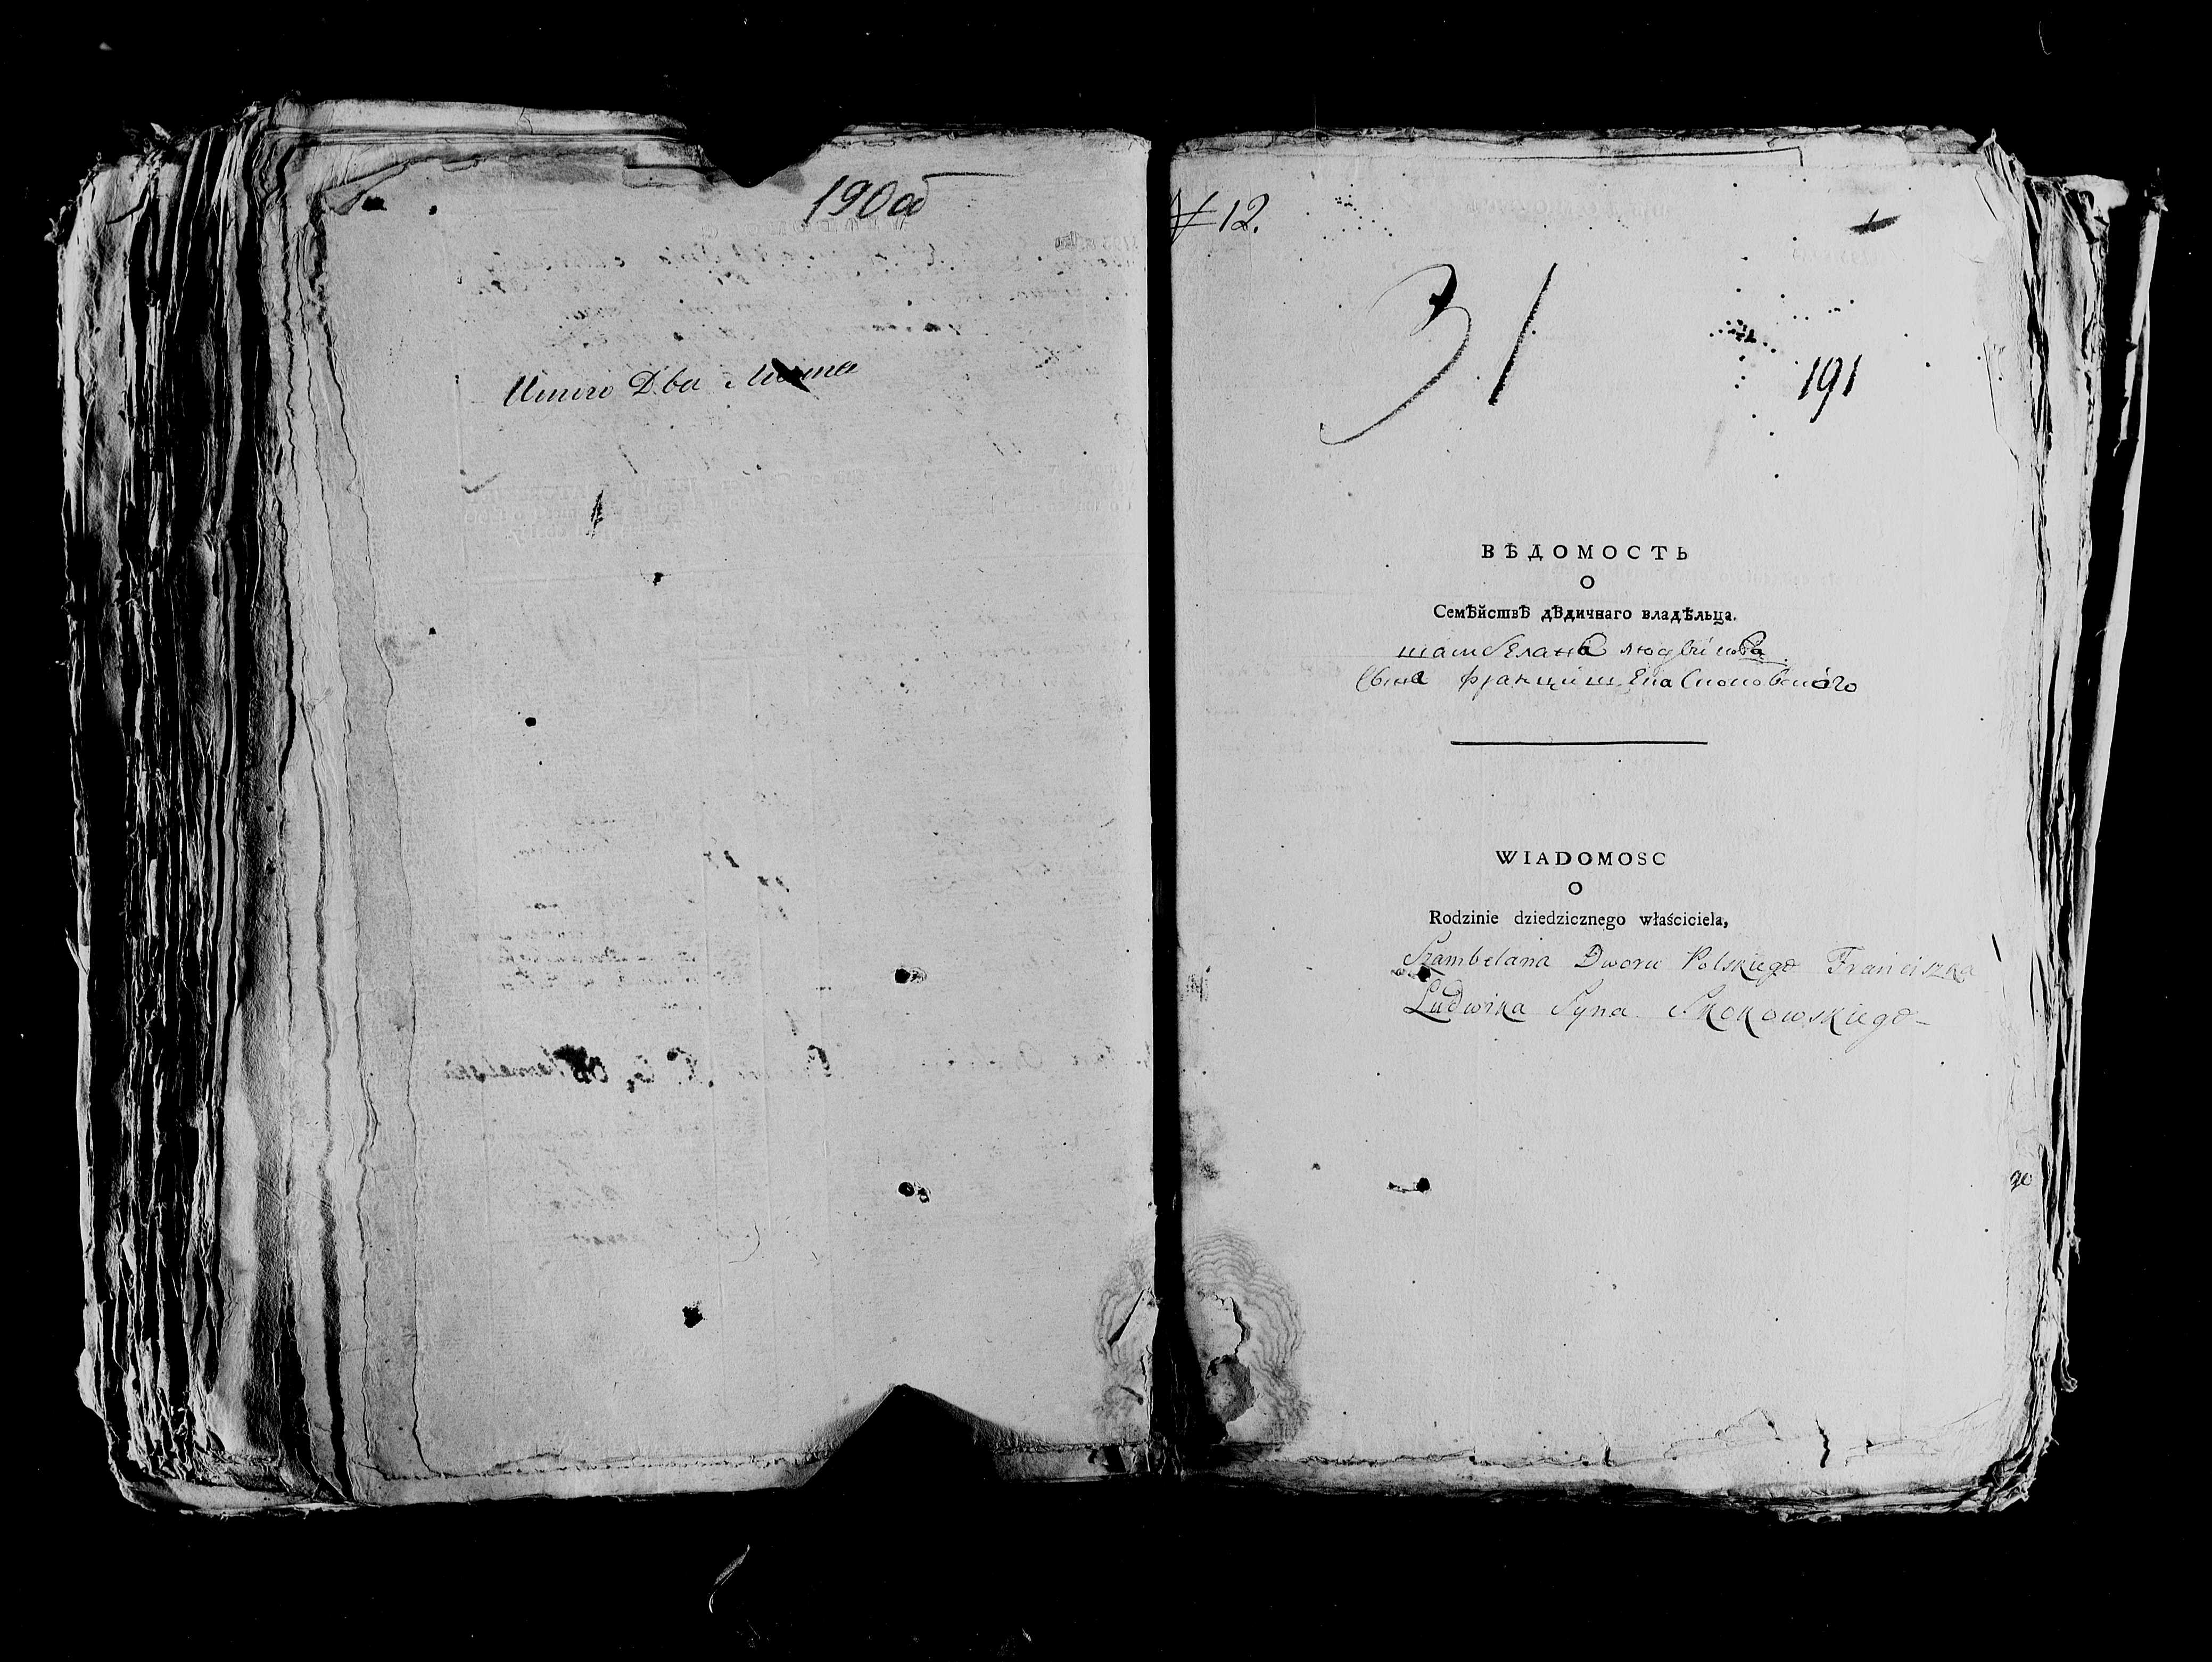 190об
Итого Два Листа
№ 12.
31
191
ВѢДОМОСТЬ
О
Семѣйствѣ дѣдичнаго владѣльца.
шамбелана людвика
Сына францишека Скоковскаго
WIADOMOSC
O
Rodzinie dziedzicznego właściciela,
Szambelana Dworu Polskiego Franciszka
Ludwika Syna Skokowskiego